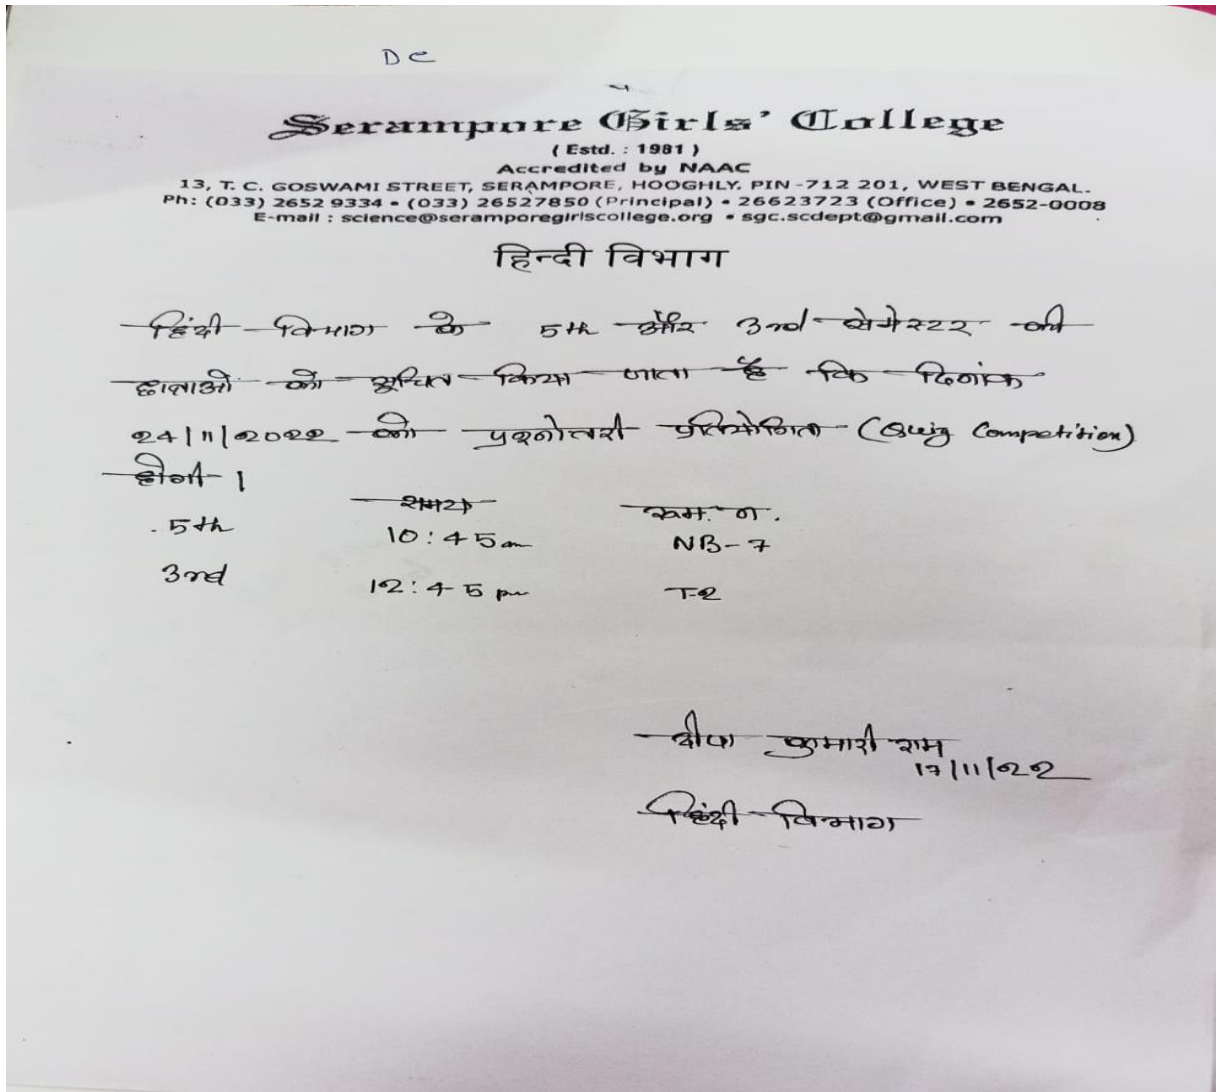 DC
Serampore Girls' College
( Estd. : 1981 )
Accredited by NAAC
13, T. C. GOSWAMI STREET, SERAMPORE, HOOGHLY. PIN -712 201, WEST BENGAL.
Ph: (033) 2652 9334 • (033) 26527850 (Principal) • 26623723 (Office) • 2652-0008
E-mail : science@seramporegirlscollege.org • sgc.scdept@gmail.com
हिन्दी विभाग
हिंदी विभाग के 5th और 3rd सेमेस्टर की
छात्राओं को सूचित किया जाता है कि दिनांक
24/11/2022 को प्रश्नोत्तरी प्रतियोगिता (Quiz Competition)
होगी ।
समय रूम. न.
5th 10:45am NB-7
3rd 12:45 pm T-2
दीपा कुमारी राम
17/11/22
हिंदी विभाग